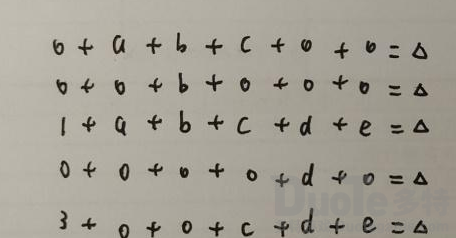 0 + a + b + c + 0 + 0 = Δ
0 + 0 + b + 0 + 0 + 0 = Δ
1 + a + b + c + d + e = Δ
0 + 0 + 0 + 0 + d + 0 = Δ
3 + 0 + 0 + c + d + e = Δ
DuoTe多特